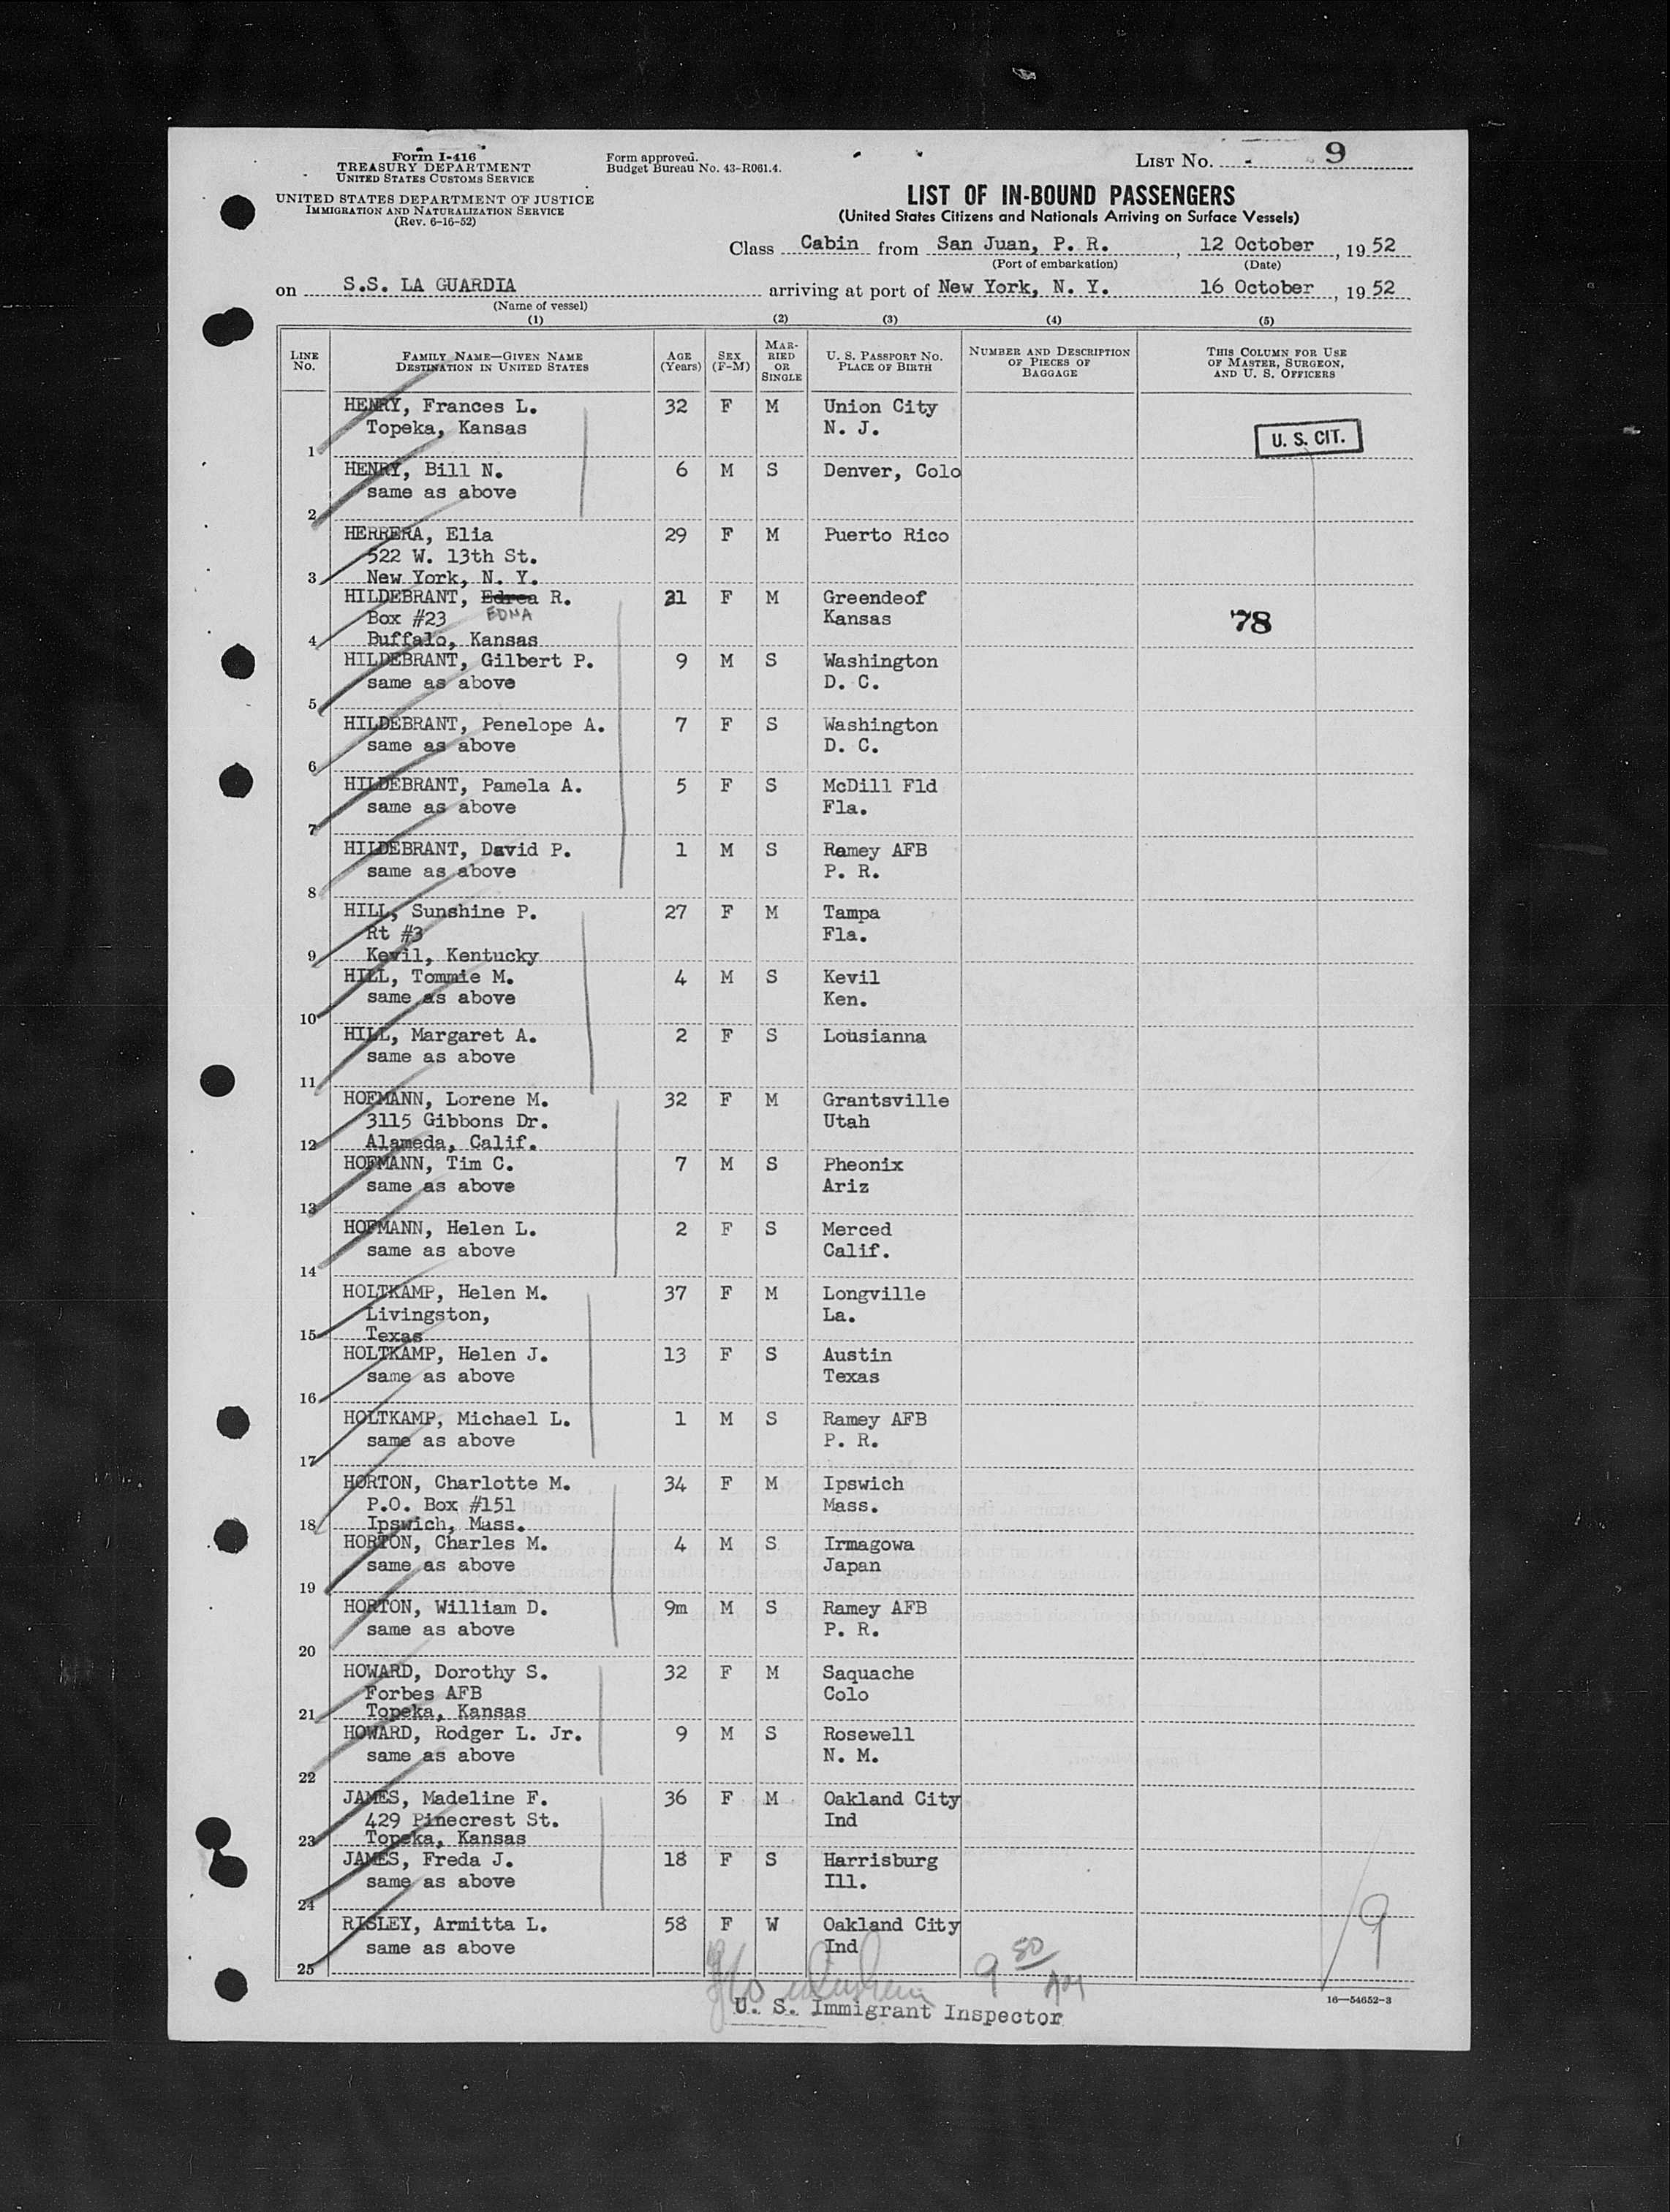 Form I-416
TREASURY DEPARTMENT
UNITED STATES CUSTOMS SERVICE
UNITED STATES DEPARTMENT OF JUSTICE
IMMIGRATION AND NATURALIZATION SERVICE
(Rev. 6-16-52)
Form approved.
Budget Bureau No. 43-R061.4.
LIST No. 9
LIST OF IN-BOUND PASSENGERS
(United States Citizens and Nationals Arriving on Surface Vessels)
Class Cabin from San Juan, P. R., 12 October, 1952
(Port of embarkation) (Date)
on S.S. LA GUARDIA arriving at port of New York, N. Y. 16 October, 1952
(Name of vessel)
(1) (2) (3) (4) (5)
LINE No. FAMILY NAME—GIVEN NAME DESTINATION IN UNITED STATES AGE (Years) SEX (F-M) MARRIED OR SINGLE U. S. PASSPORT NO. PLACE OF BIRTH NUMBER AND DESCRIPTION OF PIECES OF BAGGAGE THIS COLUMN FOR USE OF MASTER, SURGEON, AND U. S. OFFICERS
HENRY, Frances L. 32 F M Union City
Topeka, Kansas N. J.
1 U. S. CIT.
HENRY, Bill N. 6 M S Denver, Colo
same as above
2
HERRERA, Elia 29 F M Puerto Rico
522 W. 13th St.
3 New York, N. Y.
HILDEBRANT, Edrea R. 31 F M Greendeof
Box #23 EDNA Kansas 78
4 Buffalo, Kansas
HILDEBRANT, Gilbert P. 9 M S Washington
same as above D. C.
5
HILDEBRANT, Penelope A. 7 F S Washington
same as above D. C.
6
HILDEBRANT, Pamela A. 5 F S McDill Fld
same as above Fla.
7
HILDEBRANT, David P. 1 M S Ramey AFB
same as above P. R.
8
HILL, Sunshine P. 27 F M Tampa
Rt #3 Fla.
9 Kevil, Kentucky
HILL, Tommie M. 4 M S Kevil
same as above Ken.
10
HILL, Margaret A. 2 F S Lousianna
same as above
11
HOFMANN, Lorene M. 32 F M Grantsville
3115 Gibbons Dr. Utah
12 Alameda, Calif.
HOFMANN, Tim C. 7 M S Pheonix
same as above Ariz
13
HOFMANN, Helen L. 2 F S Merced
same as above Calif.
14
HOLTKAMP, Helen M. 37 F M Longville
Livingston, La.
15 Texas
HOLTKAMP, Helen J. 13 F S Austin
same as above Texas
16
HOLTKAMP, Michael L. 1 M S Ramey AFB
same as above P. R.
17
HORTON, Charlotte M. 34 F M Ipswich
P.O. Box #151 Mass.
18 Ipswich, Mass.
HORTON, Charles M. 4 M S Irmagowa
same as above Japan
19
HORTON, William D. 9m M S Ramey AFB
same as above P. R.
20
HOWARD, Dorothy S. 32 F M Saquache
Forbes AFB Colo
21 Topeka, Kansas
HOWARD, Rodger L. Jr. 9 M S Rosewell
same as above N. M.
22
JAMES, Madeline F. 36 F M Oakland City
429 Pinecrest St. Ind
23 Topeka, Kansas
JAMES, Freda J. 18 F S Harrisburg
same as above Ill.
24
RISLEY, Armitta L. 58 F W Oakland City
same as above Ind
25
9 50 AM
9
U. S. Immigrant Inspector
16—54652-3